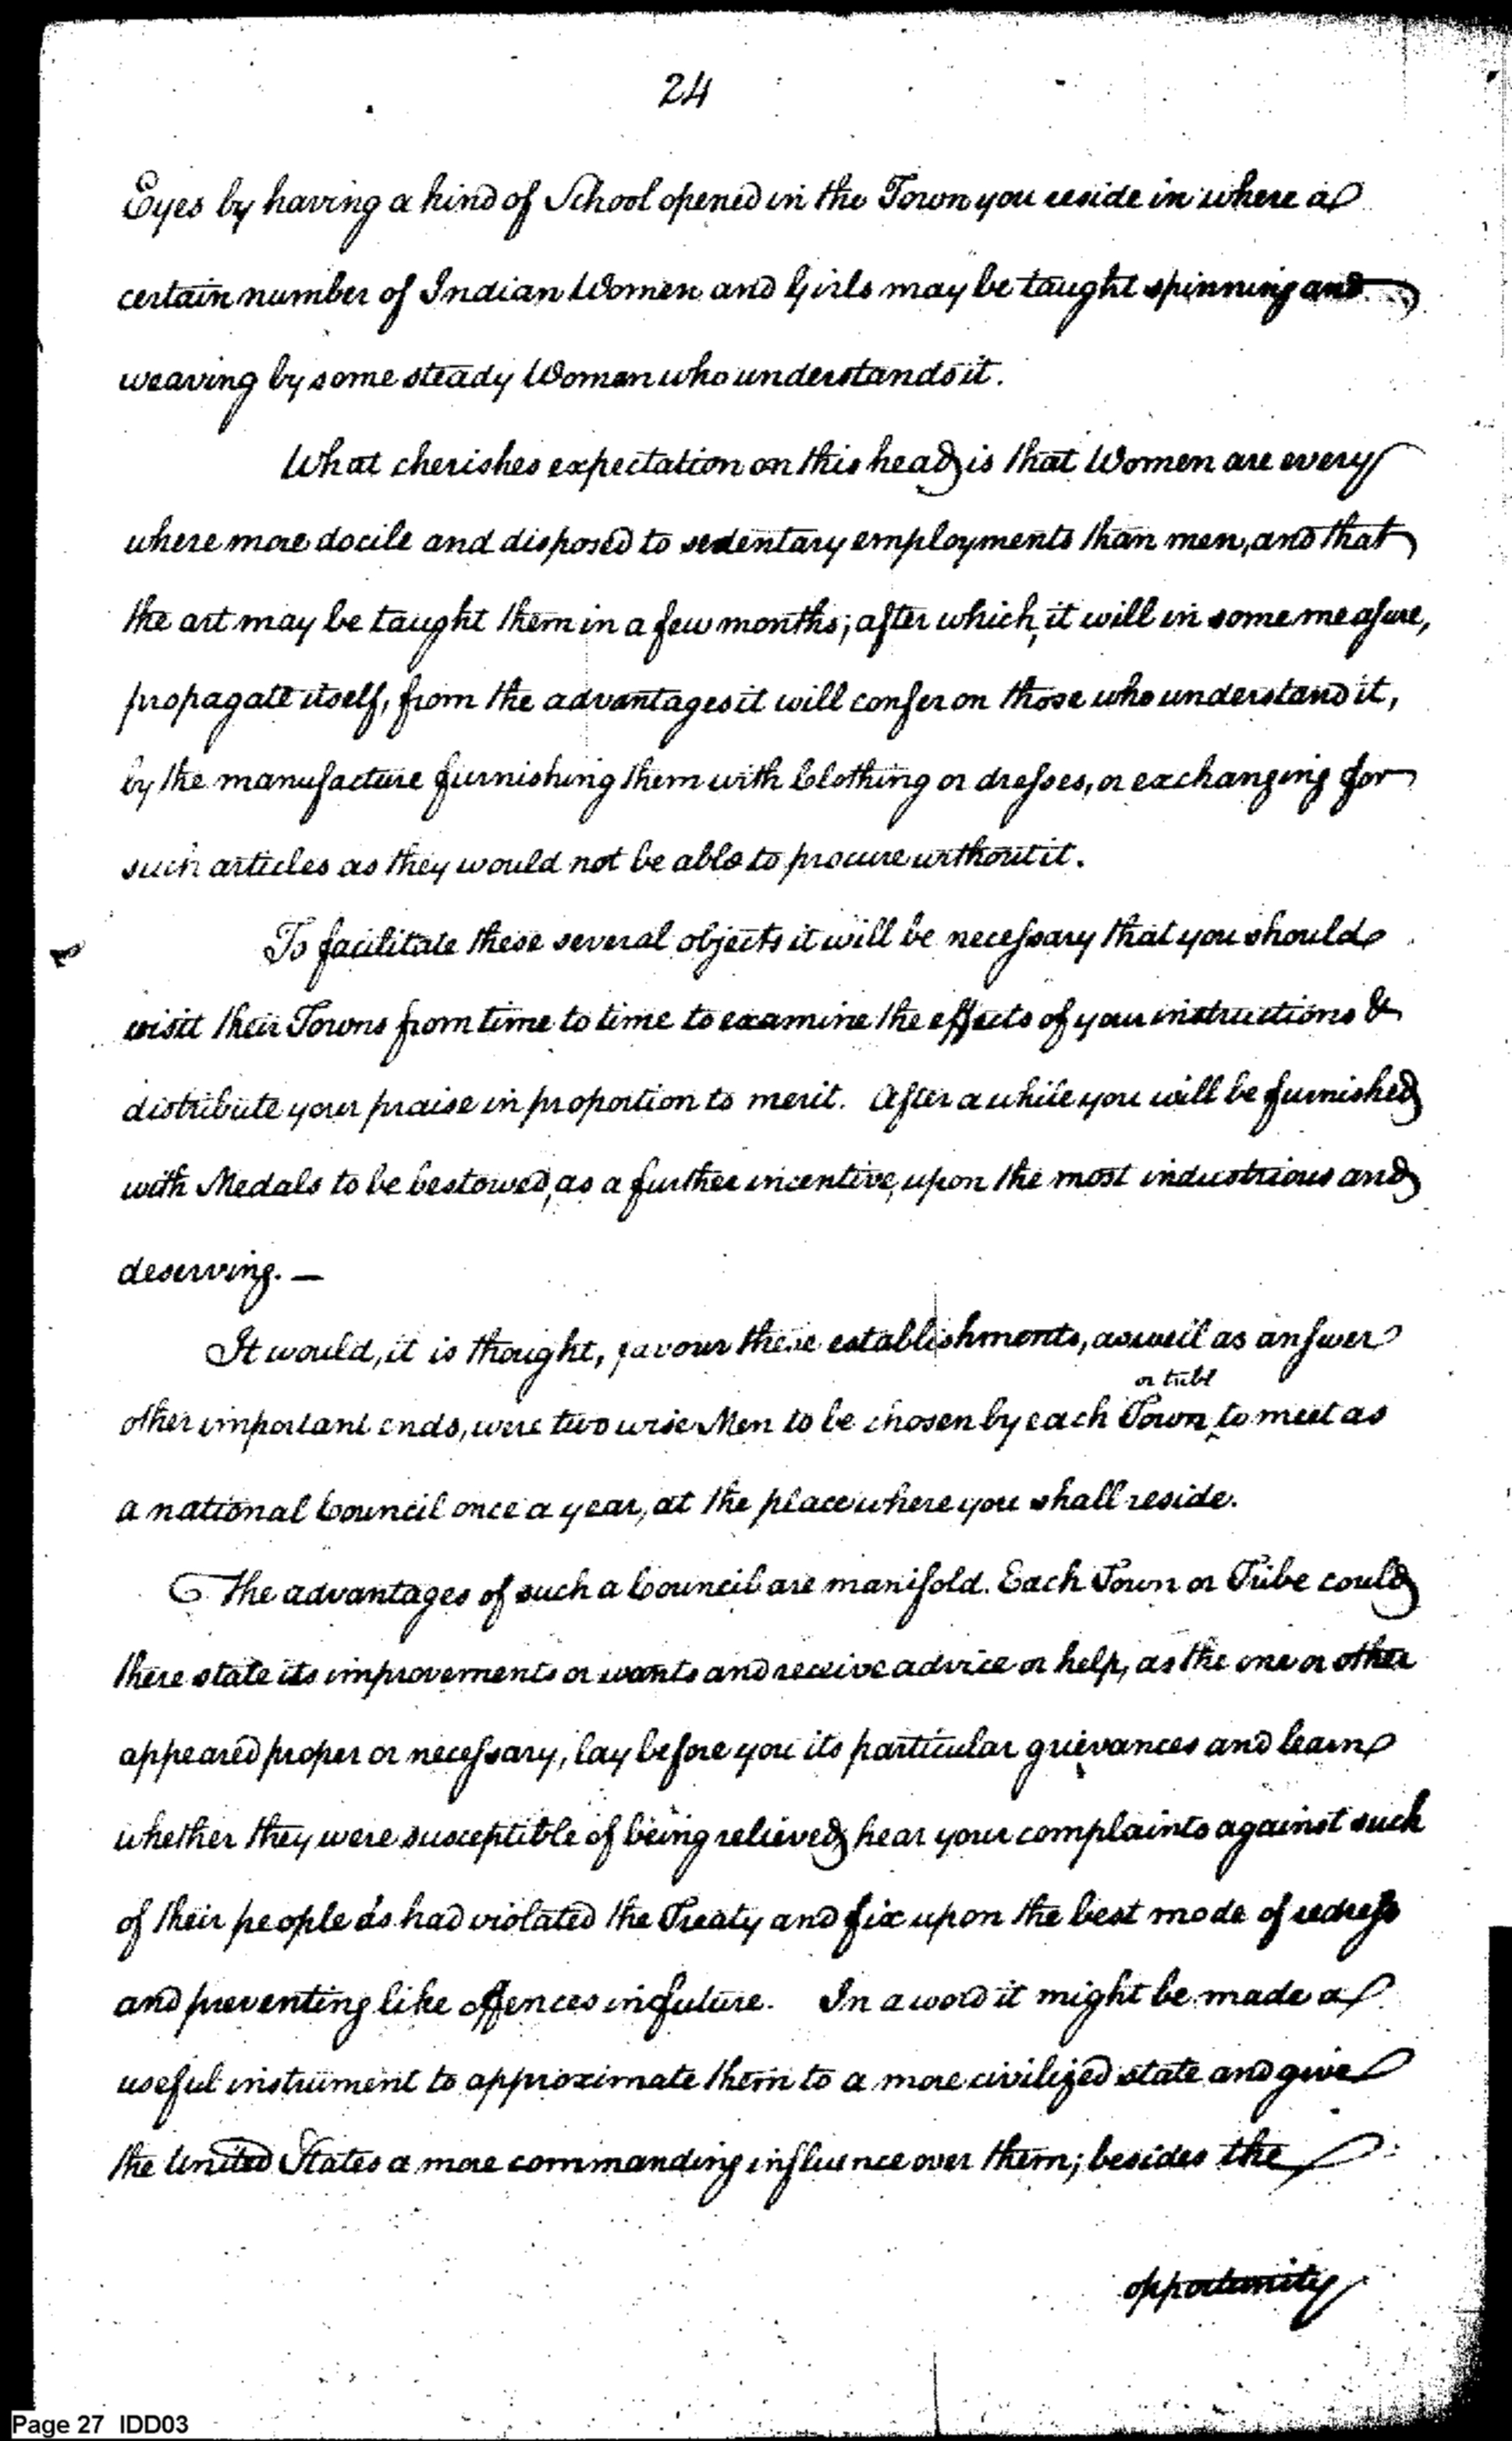 24
Eyes by having a kind of School opened in the Town you reside in where a
certain number of Indian Women and Girls may be taught spinning and
weaving by some steady Woman who understands it.
What cherishes expectation on this head, is that Women are every
where more docile and disposed to sedentary employments than men, and that
the art may be taught them in a few months; after which, it will in some measure,
propagate itself, from the advantages it will confer on those who understand it,
by the manufacture furnishing them with Clothing or dresses, or exchanging for
such articles as they would not be able to procure without it.
To facilitate these several objects it will be necessary that you should
visit their Towns from time to time to examine the effects of your instructions &
distribute your praise in proportion to merit. After a while you will be furnished
with Medals to be bestowed, as a further incentive, upon the most industrious and
deserving. —
It would, it is thought, favour these establishments, as well as answer
or tribe
other important ends, were two wise Men to be chosen by each Town ‸ to meet as
a national Council once a year, at the place where you shall reside.
The advantages of such a Council are manifold. Each Town or Tribe could
there state its improvements or wants and receive advice or help, as the one or other
appeared proper or necessary, lay before you its particular grievances and learn
whether they were susceptible of being relieved, hear your complaints against such
of their people as had violated the Treaty and fix upon the best mode of redress
and preventing like offences in future. In a word it might be made a
useful instrument to approximate them to a more civilized state and give
the United States a more commanding influence over them; besides the
opportunity
Page 27 IDD03